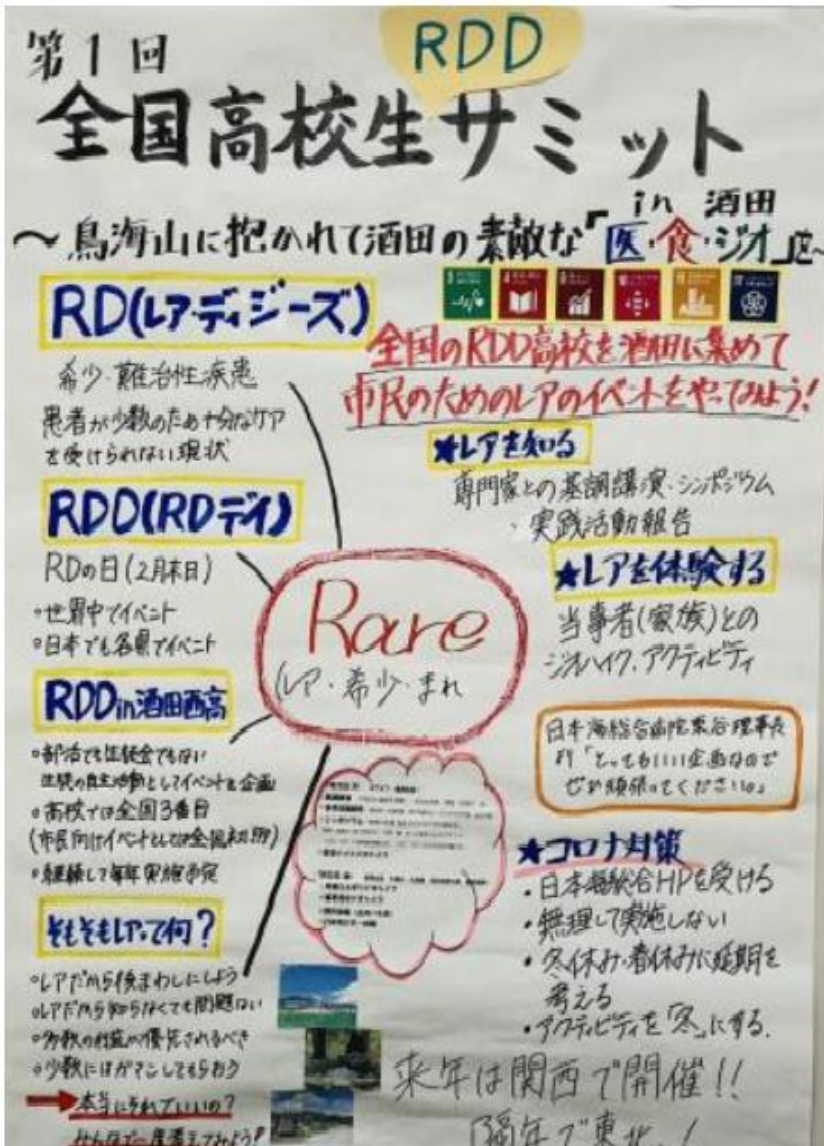 第1回
RDD
全国高校生サミット
in 酒田
～鳥海山に抱かれて酒田の素敵な「医・食・ジオ」を～
RD(レア・ディジーズ)
希少・難治性疾患
患者が少数のため十分なケア
を受けられない現状
RDD(RDデイ)
RDの日(2月末日)
○世界中でイベント
○日本でも各県でイベント
RDD in酒田西高
○部活でも生徒会でもない
生徒の自主活動としてイベントを企画
○高校では全国3番目
(市民向けイベントとしては全国初)
○継続して毎年実施予定
そもそもレアって何?
○レアだから後まわしにしよう
○レアだから知らなくても問題ない
○多数の利益が優先されるべき
○少数にはガマンしてもらおう
本当にそれでいいの?
みんなで一度考えてみよう!
Rare
(レア・希少・まれ
全国のRDD高校を酒田に集めて
市民のためのレアのイベントをやってみよう!
★レアを知る
専門家との基調講演・シンポジウム
・実践活動報告
★レアを体験する
当事者(家族)との
ジオハイク、アクティビティ
日本海総合病院栗谷理事長
曰く「とってもいい企画なので
ぜひ頑張ってください。」
★コロナ対策
・日本海総合HPを受ける
・無理して実施しない
・冬休み・春休みに延期を
考える
・アクティビティを「冬」にする。
来年は関西で開催!!
隔年で東北!